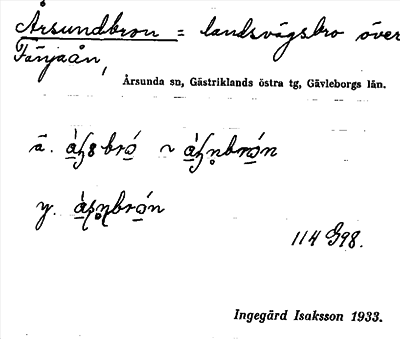 Årsundbron = landsvägsbro över
Färjaån,
Årsunda sn, Gästriklands östra tg, Gävleborgs län.
ä.
y.
114 G98.
Ingegärd Isaksson 1933.